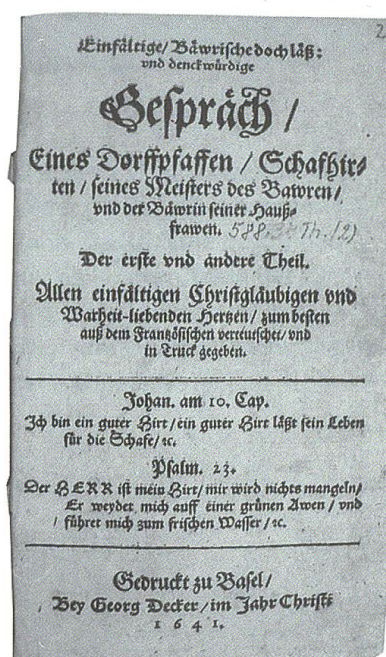 2
Einfältige / Bäwrische doch läß:
vnd denckwürdige
Gespräch /
Eines Dorffpfaffen / Schafhir⸗
ten / seines Meisters des Bawren /
vnd der Bäwrin seiner Hauß⸗
frawen. 588. Th. (2)
Der erste vnd andere Theil.
Allen einfältigen Christgläubigen vnd
Warheit-liebenden Hertzen / zum besten
auß dem Frantzösischen verteutschet / vnd
in Truck gegeben.
Johan. am 10. Cap.
Ich bin ein guter Hirt / ein guter Hirt läßt sein Leben
für die Schafe / ꝛc.
Psalm. 23.
Der HERR ist mein Hirt / mir wird nichts mangeln /
Er weydet mich auff einer grünen Awen / vnd
führet mich zum frischen Wasser / ꝛc.
Gedruckt zu Basel /
Bey Georg Decker / im Jahr Christi
1 6 4 1.